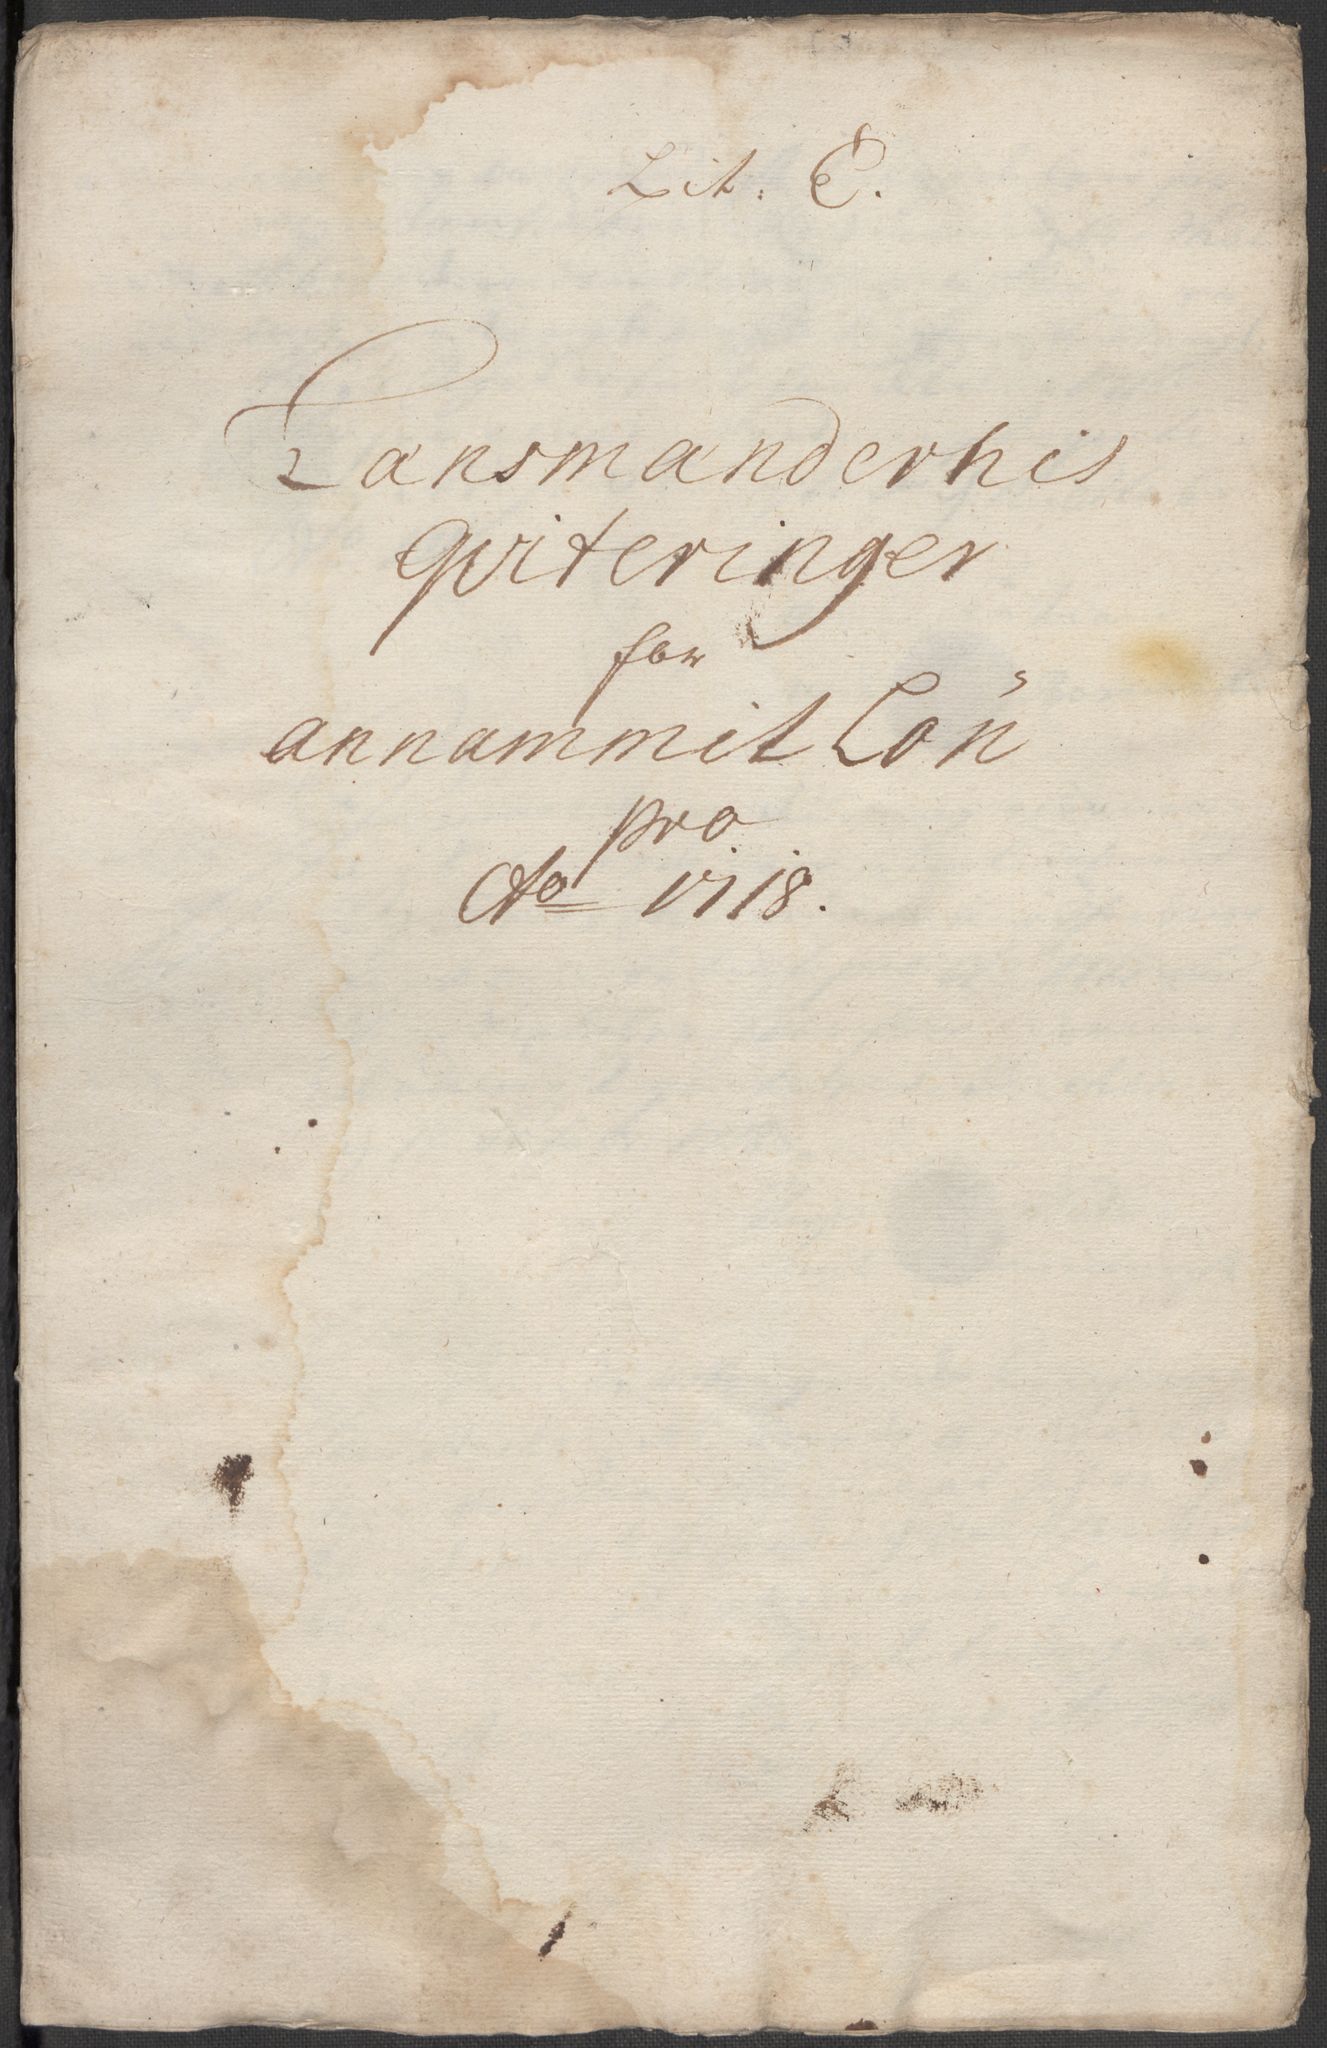 Lit. C.
Lansmandernis
qviteringer
for
annammit Lön
pro
Ao 1718.